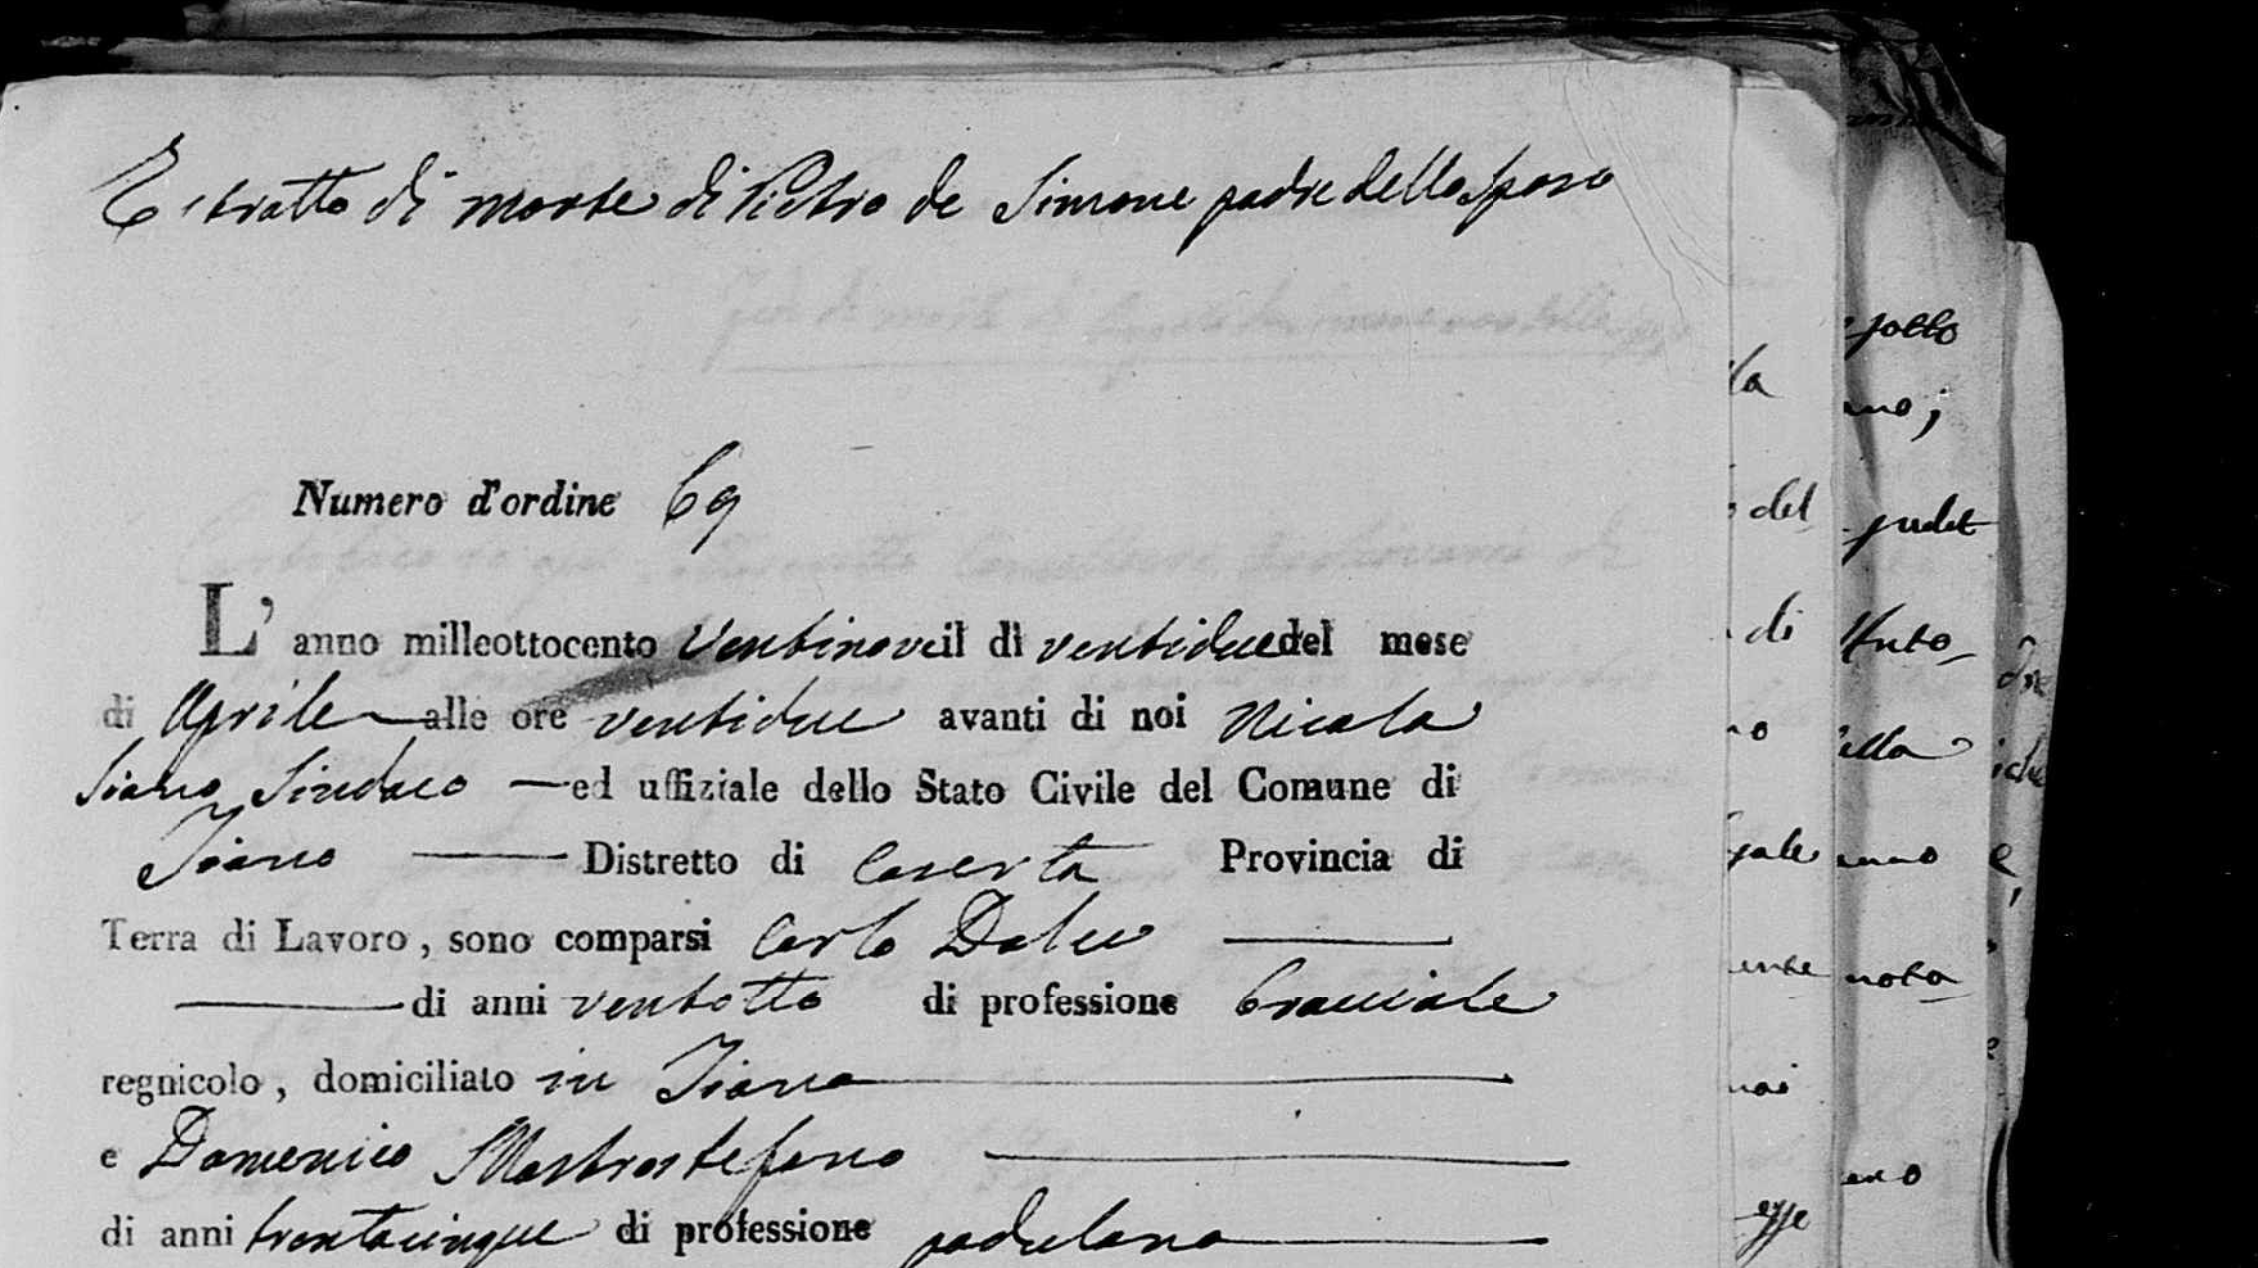 Estratto di morte di Pietro de Simone padre dello sposo
Numero d'ordine 69
L'anno milleottocento Ventinove il dì ventidue del mese
di Aprile alle ore ventidue avanti di noi Nicola
Siano Sindaco ed uffiziale dello Stato Civile del Comune di
Distretto di Caserta Provincia di
Terra di Lavoro, sono comparsi Carlo
di anni ventotto di professione bracciale
regnicolo, domiciliato in
e Domenico Mastrostefano
di anni trentacinque di professione padulano
la
del
di
no
ente
noi
esse
no;
ella
nota
e